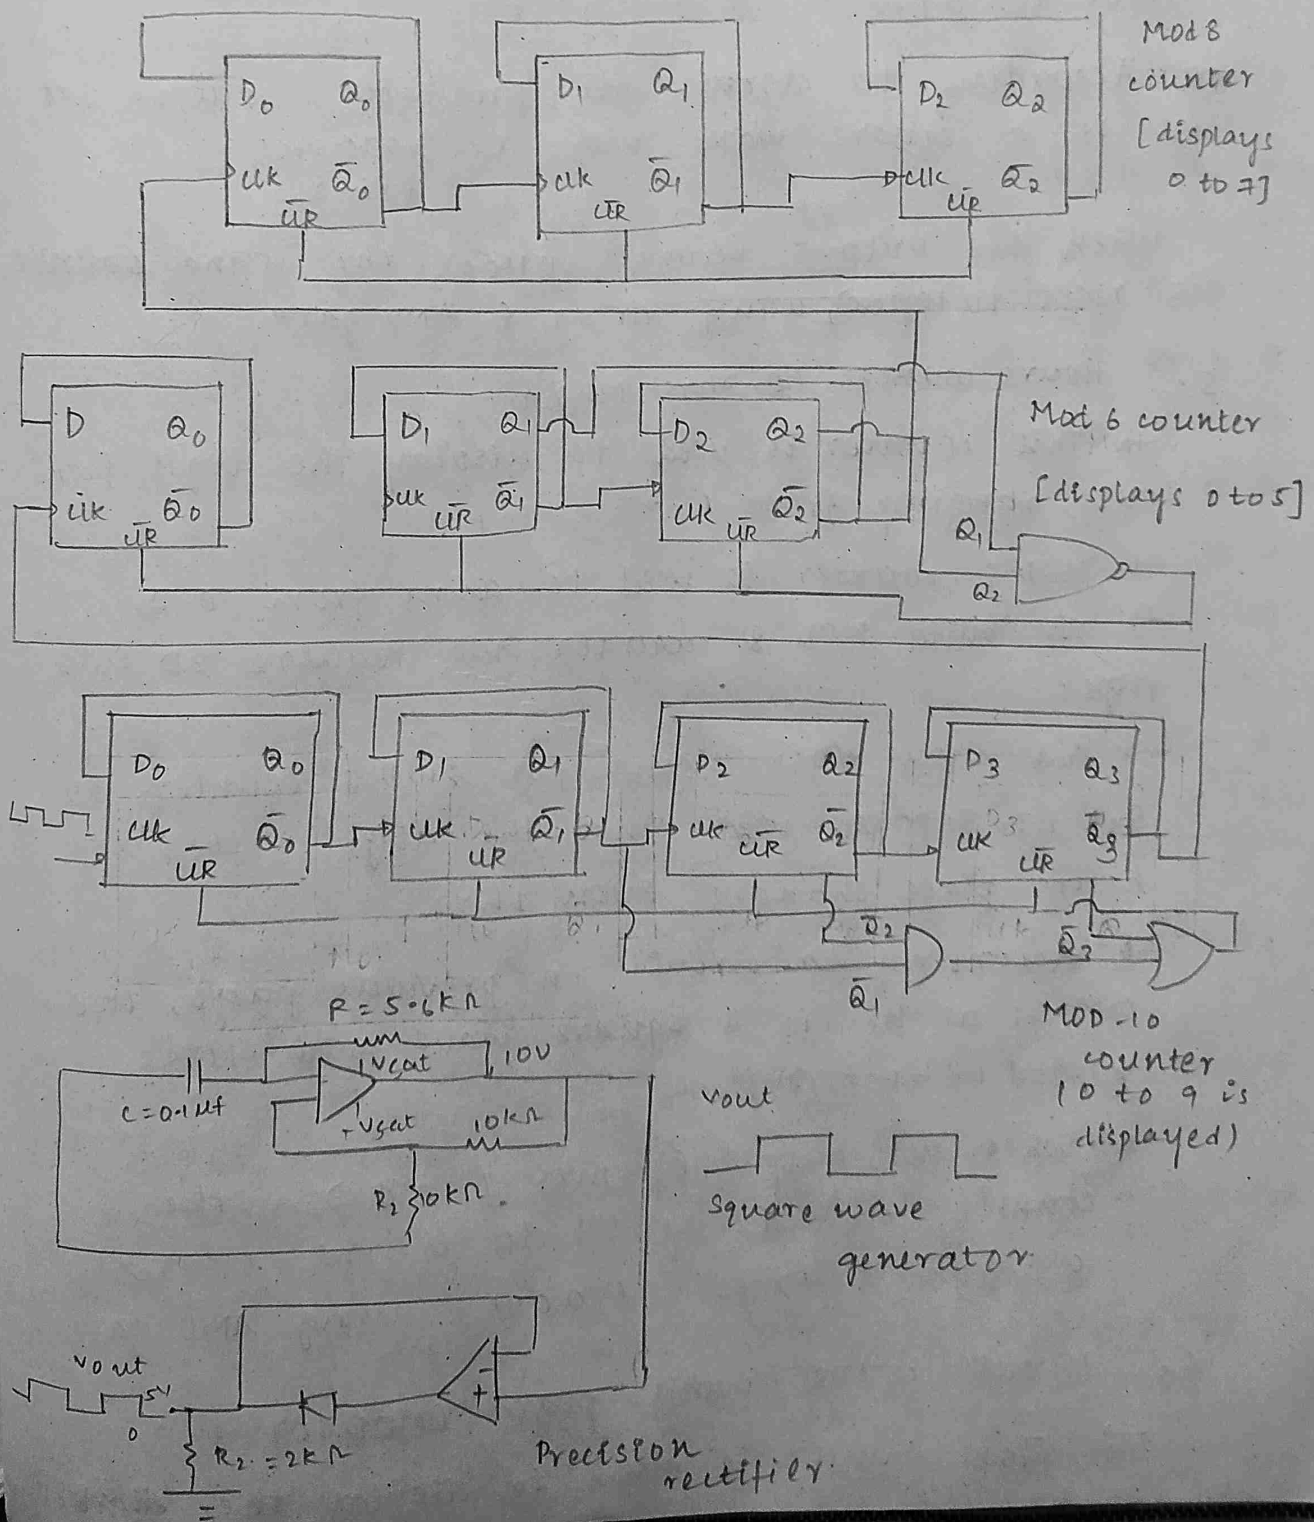 Mod 8
counter
[displays
0 to 7]
D₀ Q₀
Clk Q̄₀
C̄L̄R̄
D₁ Q₁
clk Q̄₁
C̄L̄R̄
D₂ Q₂
clk Q̄₂
C̄L̄R̄
D Q₀
clk Q̄₀
C̄L̄R̄
D₁ Q₁
clk Q̄₁
C̄L̄R̄
D₂ Q₂
clk Q̄₂
C̄L̄R̄
Mod 6 counter
[displays 0 to 5]
Q₁
Q₂
D₀ Q₀
clk Q̄₀
C̄L̄R̄
D₁ Q₁
clk Q̄₁
C̄L̄R̄
D₂ Q₂
clk Q̄₂
C̄L̄R̄
D₃ Q₃
clk Q̄₃
C̄L̄R̄
Q̄₂
Q̄₁
Q̄₃
MOD-10
counter
(0 to 9 is
displayed)
R = 5.6KΩ
+Vsat
10V
C=0.1μf
-Vsat
10kΩ
R₂ 10KΩ
Vout
Square wave
generator
Vout
5V
0
R₂ = 2KΩ
-
+
Precision
rectifier